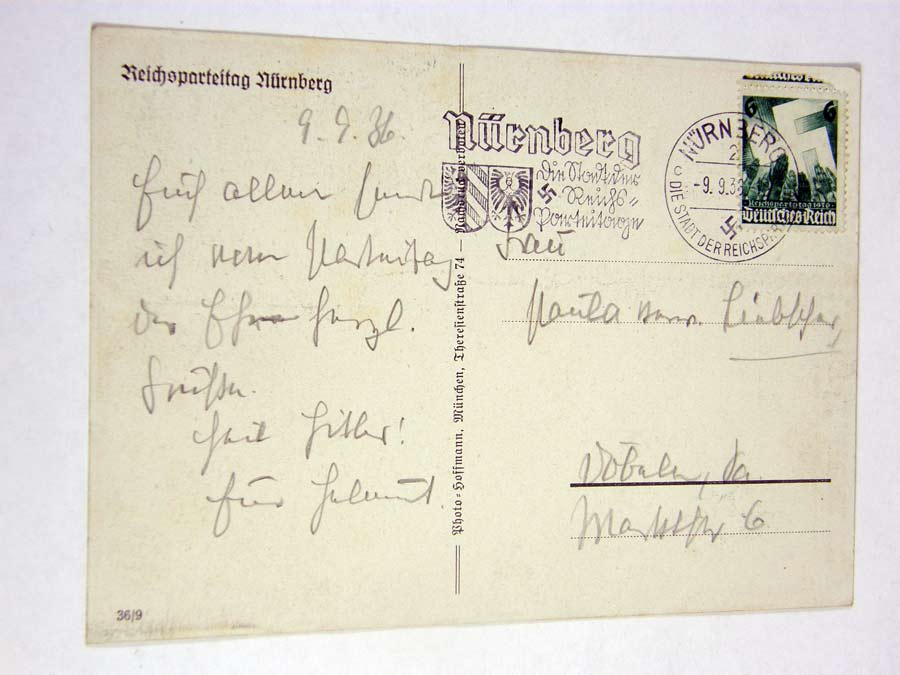 Reichsparteitag Nürnberg
9.9.36
Euch allen sendet
ich vom Parteitag
der Ehre herzl.
Grüße.
Heil Hitler!
Euer Helmut
36/9
Photo-Hoffmann, München, Theresienstraße 74 — Nachdruck verboten
Nürnberg
Die Stadt der
Reichs=
Parteitage
NÜRNBERG
2
C
-9.9.36
DIE STADT DER REICHSP
6 6
Reichsparteitag 1936
Deutsches Reich
Frau
Paula verw. Liebscher,
Döbeln, Sa.
Marktstr 6